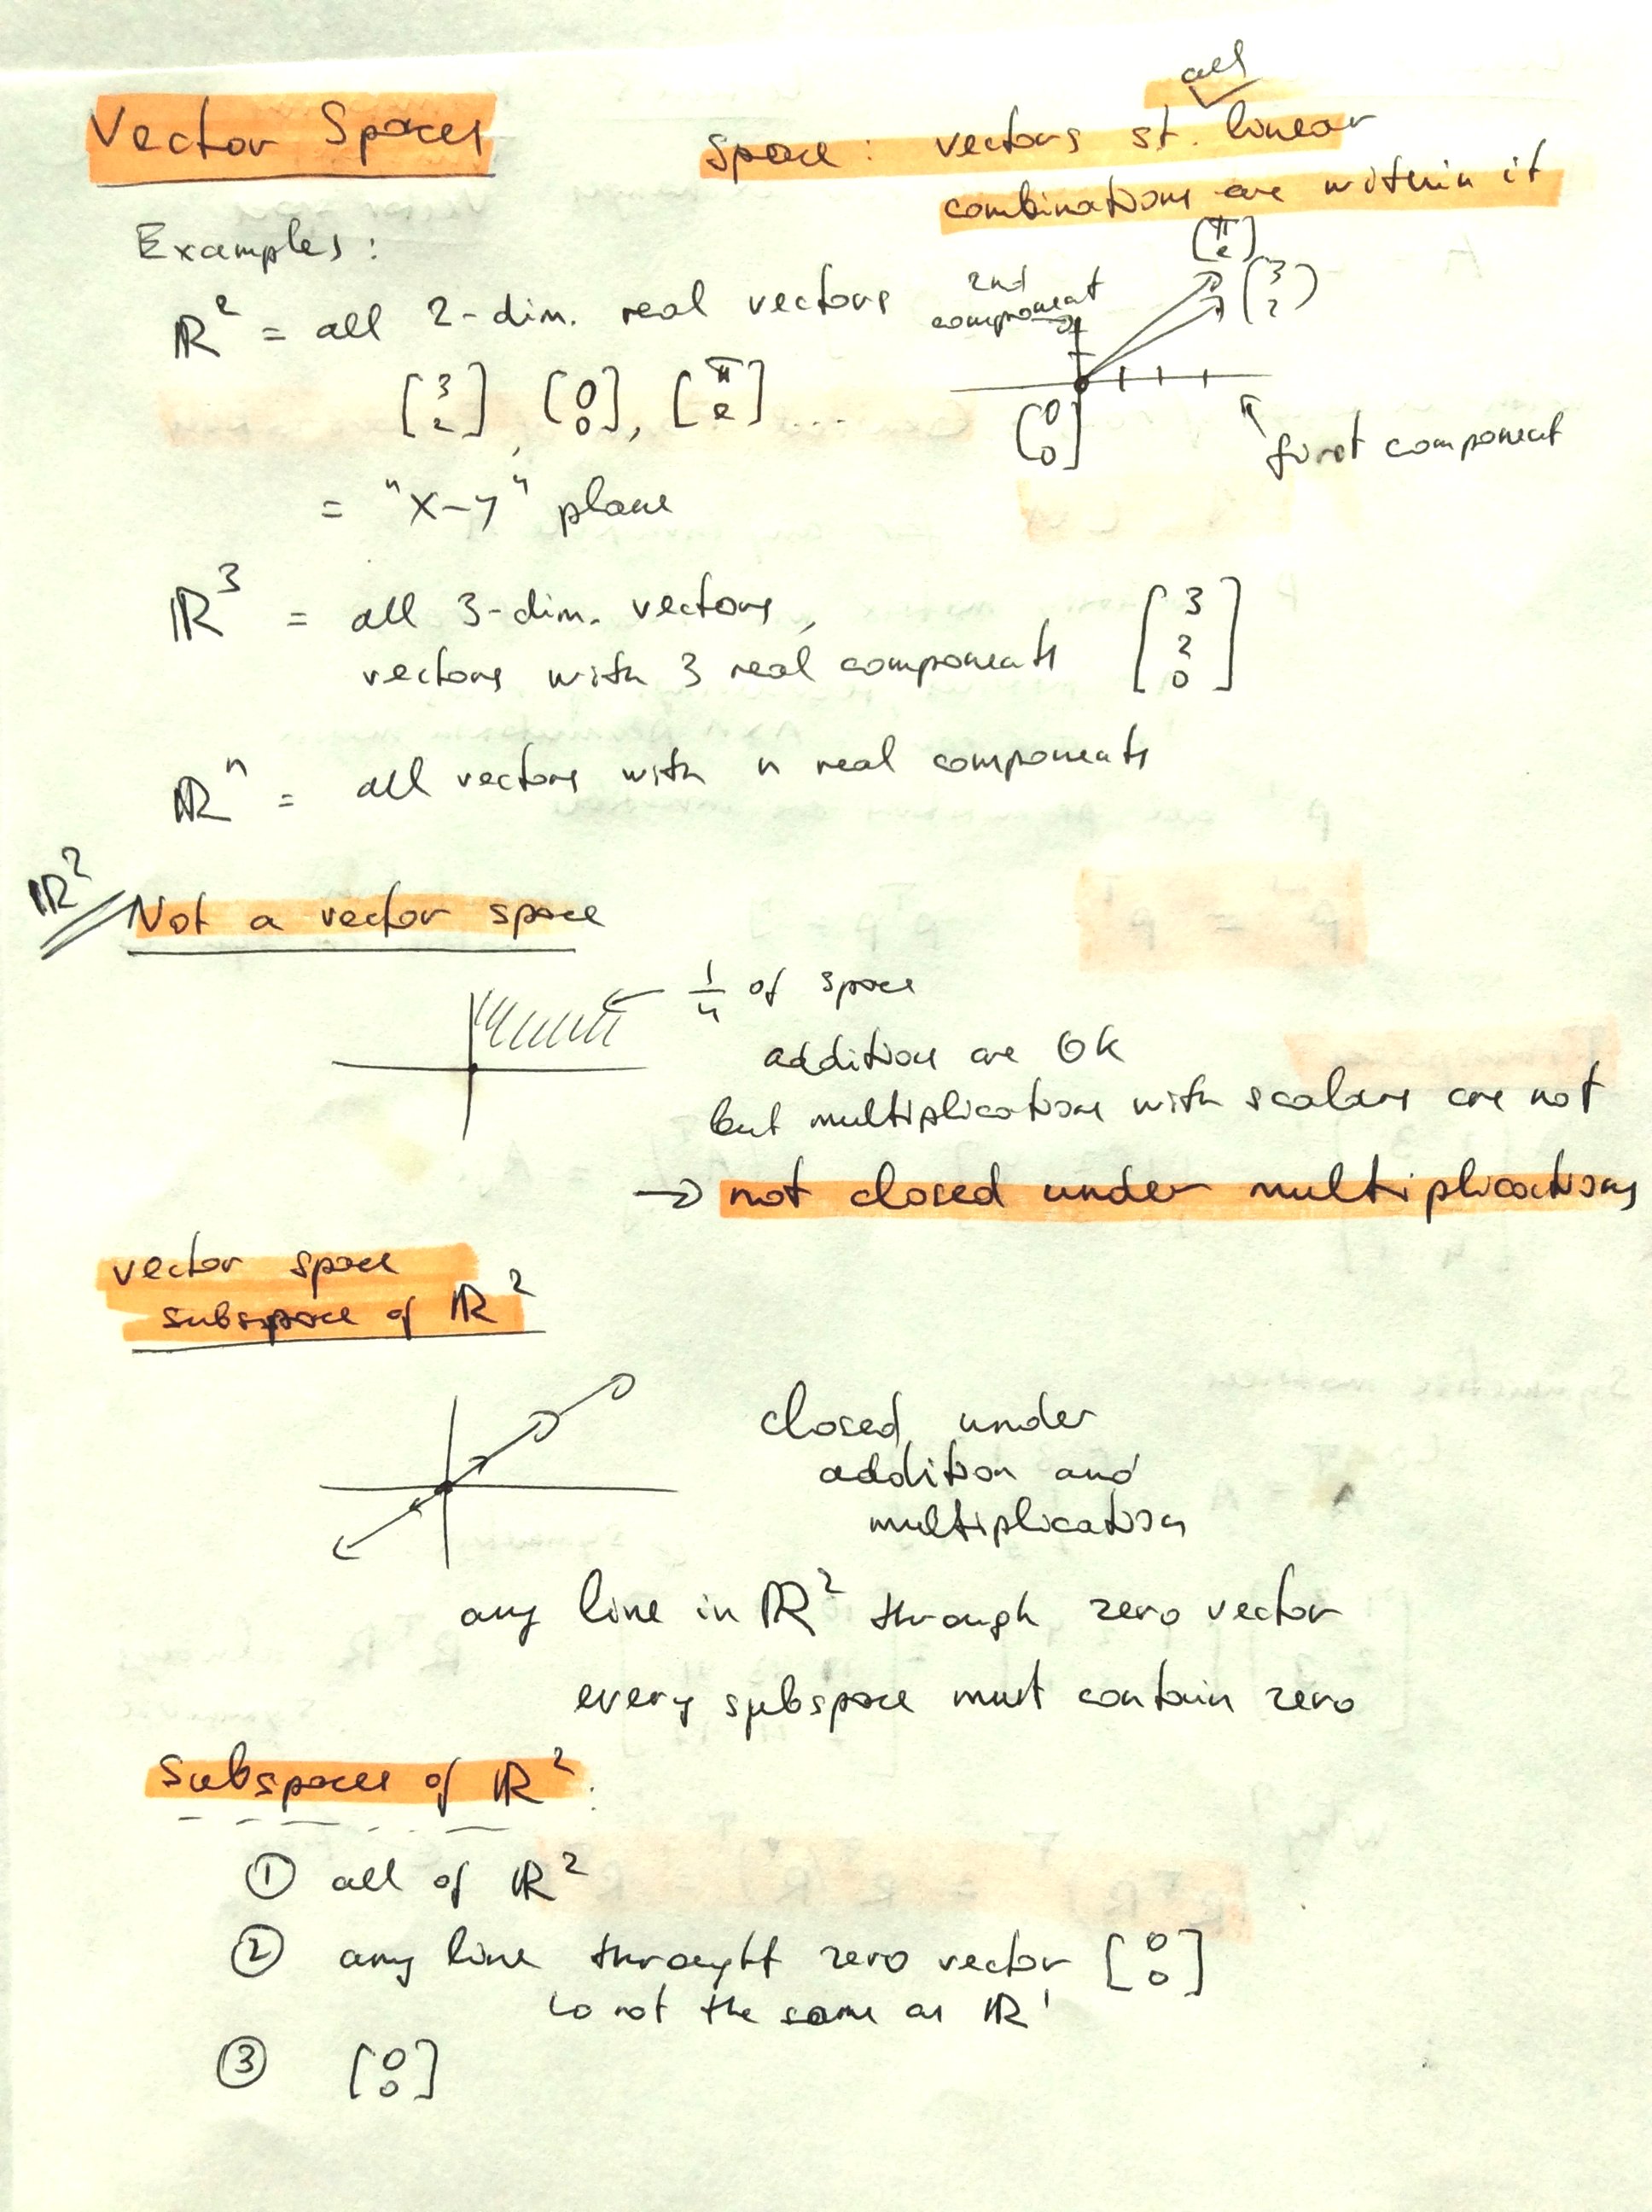 all
Vector Spaces
space: vectors st. linear
combinations are within it
Examples:
ℝ² = all 2-dim. real vectors
[3 2], [0 0], [π e] ....
= "x-y" plane
2nd
component
[π e]
(3 2)
[0 0]
first component
ℝ³ = all 3-dim. vectors,
vectors with 3 real components [3 2 0]
ℝⁿ = all vectors with n real components
ℝ² // Not a vector space
← 1/4 of space
additions are OK
but multiplications with scalars are not
→ not closed under multiplications
vector space
subspace of ℝ²
closed under
addition and
multiplication
any line in ℝ² through zero vector
every subspace must contain zero
Subspaces of ℝ²:
① all of ℝ²
② any line throught zero vector [0 0]
↳ not the same as ℝ¹
③ [0 0]